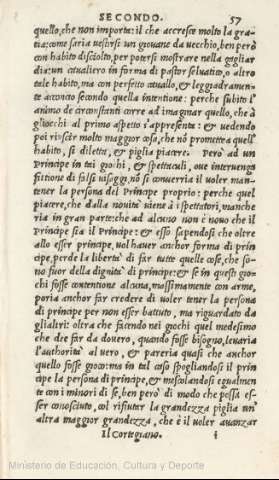 SECONDO. 57
quello, che non importa: il che accresce molto la gra-
tia: come saria uestirsi un giouane da uecchio, ben però
con habito disciolto, per potersi mostrare nella gagliar
dia: un caualiero in forma di pastor seluatico, o altro
tale habito, ma con perfetto cauallo, & leggiadramen-
te acconcio secondo quella intentione: perche subito l'
animo de circonstanti corre ad imaginar quello, che à
gliocchi al primo aspetto s'appresenta: & uedendo
poi riuscir molto maggior cosa, che nõ prometteua quell'
habito, si diletta, & piglia piacere. Però ad un
Principe in tai giochi, & spettaculi, oue interuenga
fittione di falsi uisaggi, nõ si conuerria il uoler man-
tener la persona del Principe proprio: perche quel
piacere, che dalla nouità uiene à i spettatori, manche
ria in gran parte: che ad alcuno non è nouo che il
Principe sia il Principe: & esso sapendosi che oltre
allo esser principe, uol hauer anchor forma di prin
cipe, perde la libertà di far tutte quelle cose, che so-
no fuor della dignità di principe: & se in questi gio-
chi fosse contentione alcuna, massimamente con arme,
poria anchor far credere di uoler tener la persona
di principe per non esser battuto, ma riguardato da
glialtri: oltra che facendo nei giochi quel medesimo
che dee far da douero, quando fosse bisogno, leuaria
l'authorità al uero, & pareria quasi che anchor
quello fosse gioco: ma in tal caso spogliandosi il prin
cipe la persona di principe, & mescolandosi egualmen
te con i minori di se, ben però di modo che possa es-
ser conosciuto, col rifiutar la grandezza piglia un'
altra maggior grandezza, che è il uoler auanzar
Il Cortegiano.
Ministerio de Educación, Cultura y Deporte